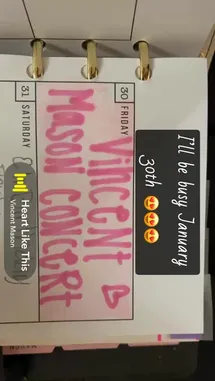 I'll be busy January
30th 😍😍😍
30 FRIDAY
Vincent ♡
Mason Concert
31 SATURDAY
Heart Like This
Vincent Mason